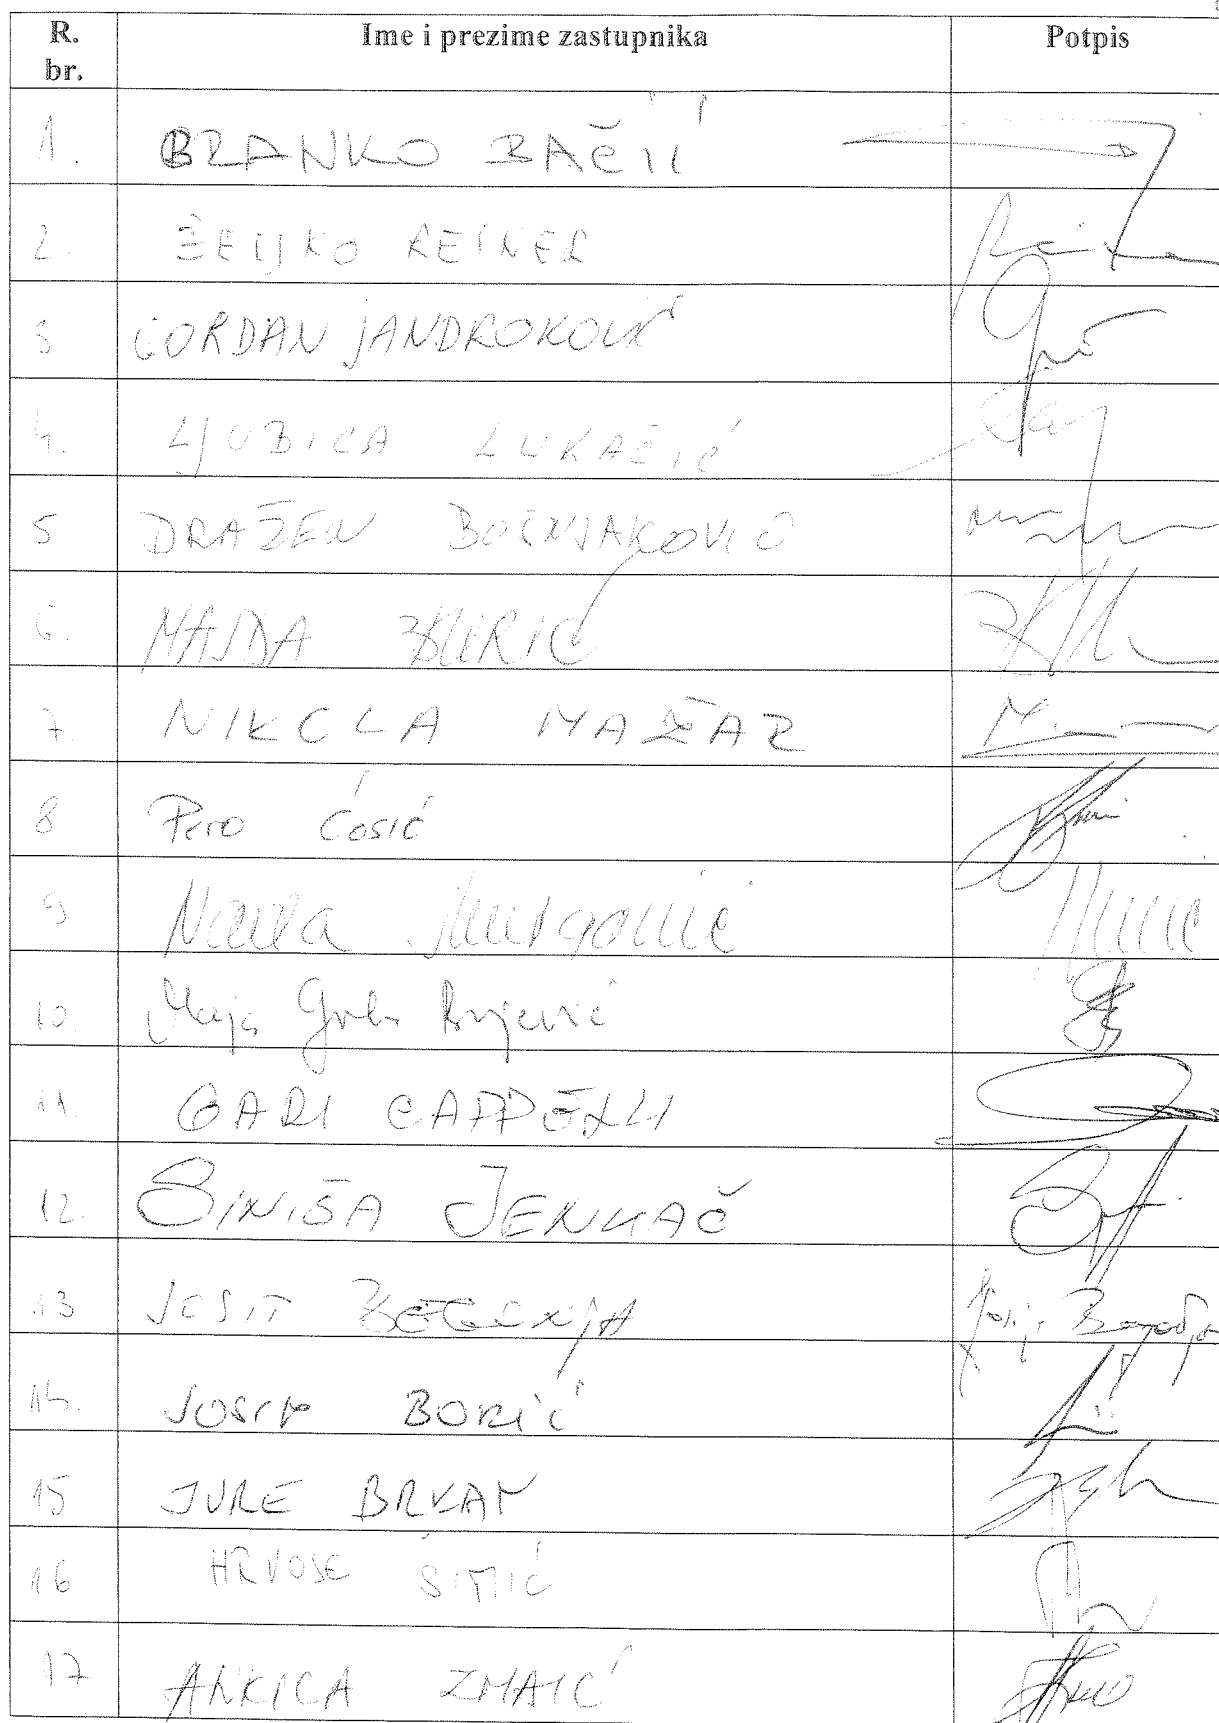 R. br. Ime i prezime zastupnika Potpis
1. BRANKO BAČIĆ
2. ŽELJKO REINER
3 GORDAN JANDROKOVIĆ
4. LJUBICA LUKAČIĆ
5 DRAŽEN BOŠNJAKOVIĆ
6. MAJDA BURIĆ
7. NIKOLA MAŽAR
8 Pero Ćosić
9 Nada Murganić
10. Maja Grba Bujević
11. GARI CAPPELLI
12. SINIŠA JENKAČ
13 JOSIP BEGONJA
14. JOSIP BORIĆ
15 JURE BRKAN
16 HRVOJE ŠIMIĆ
17 ANKICA ZMAIĆ